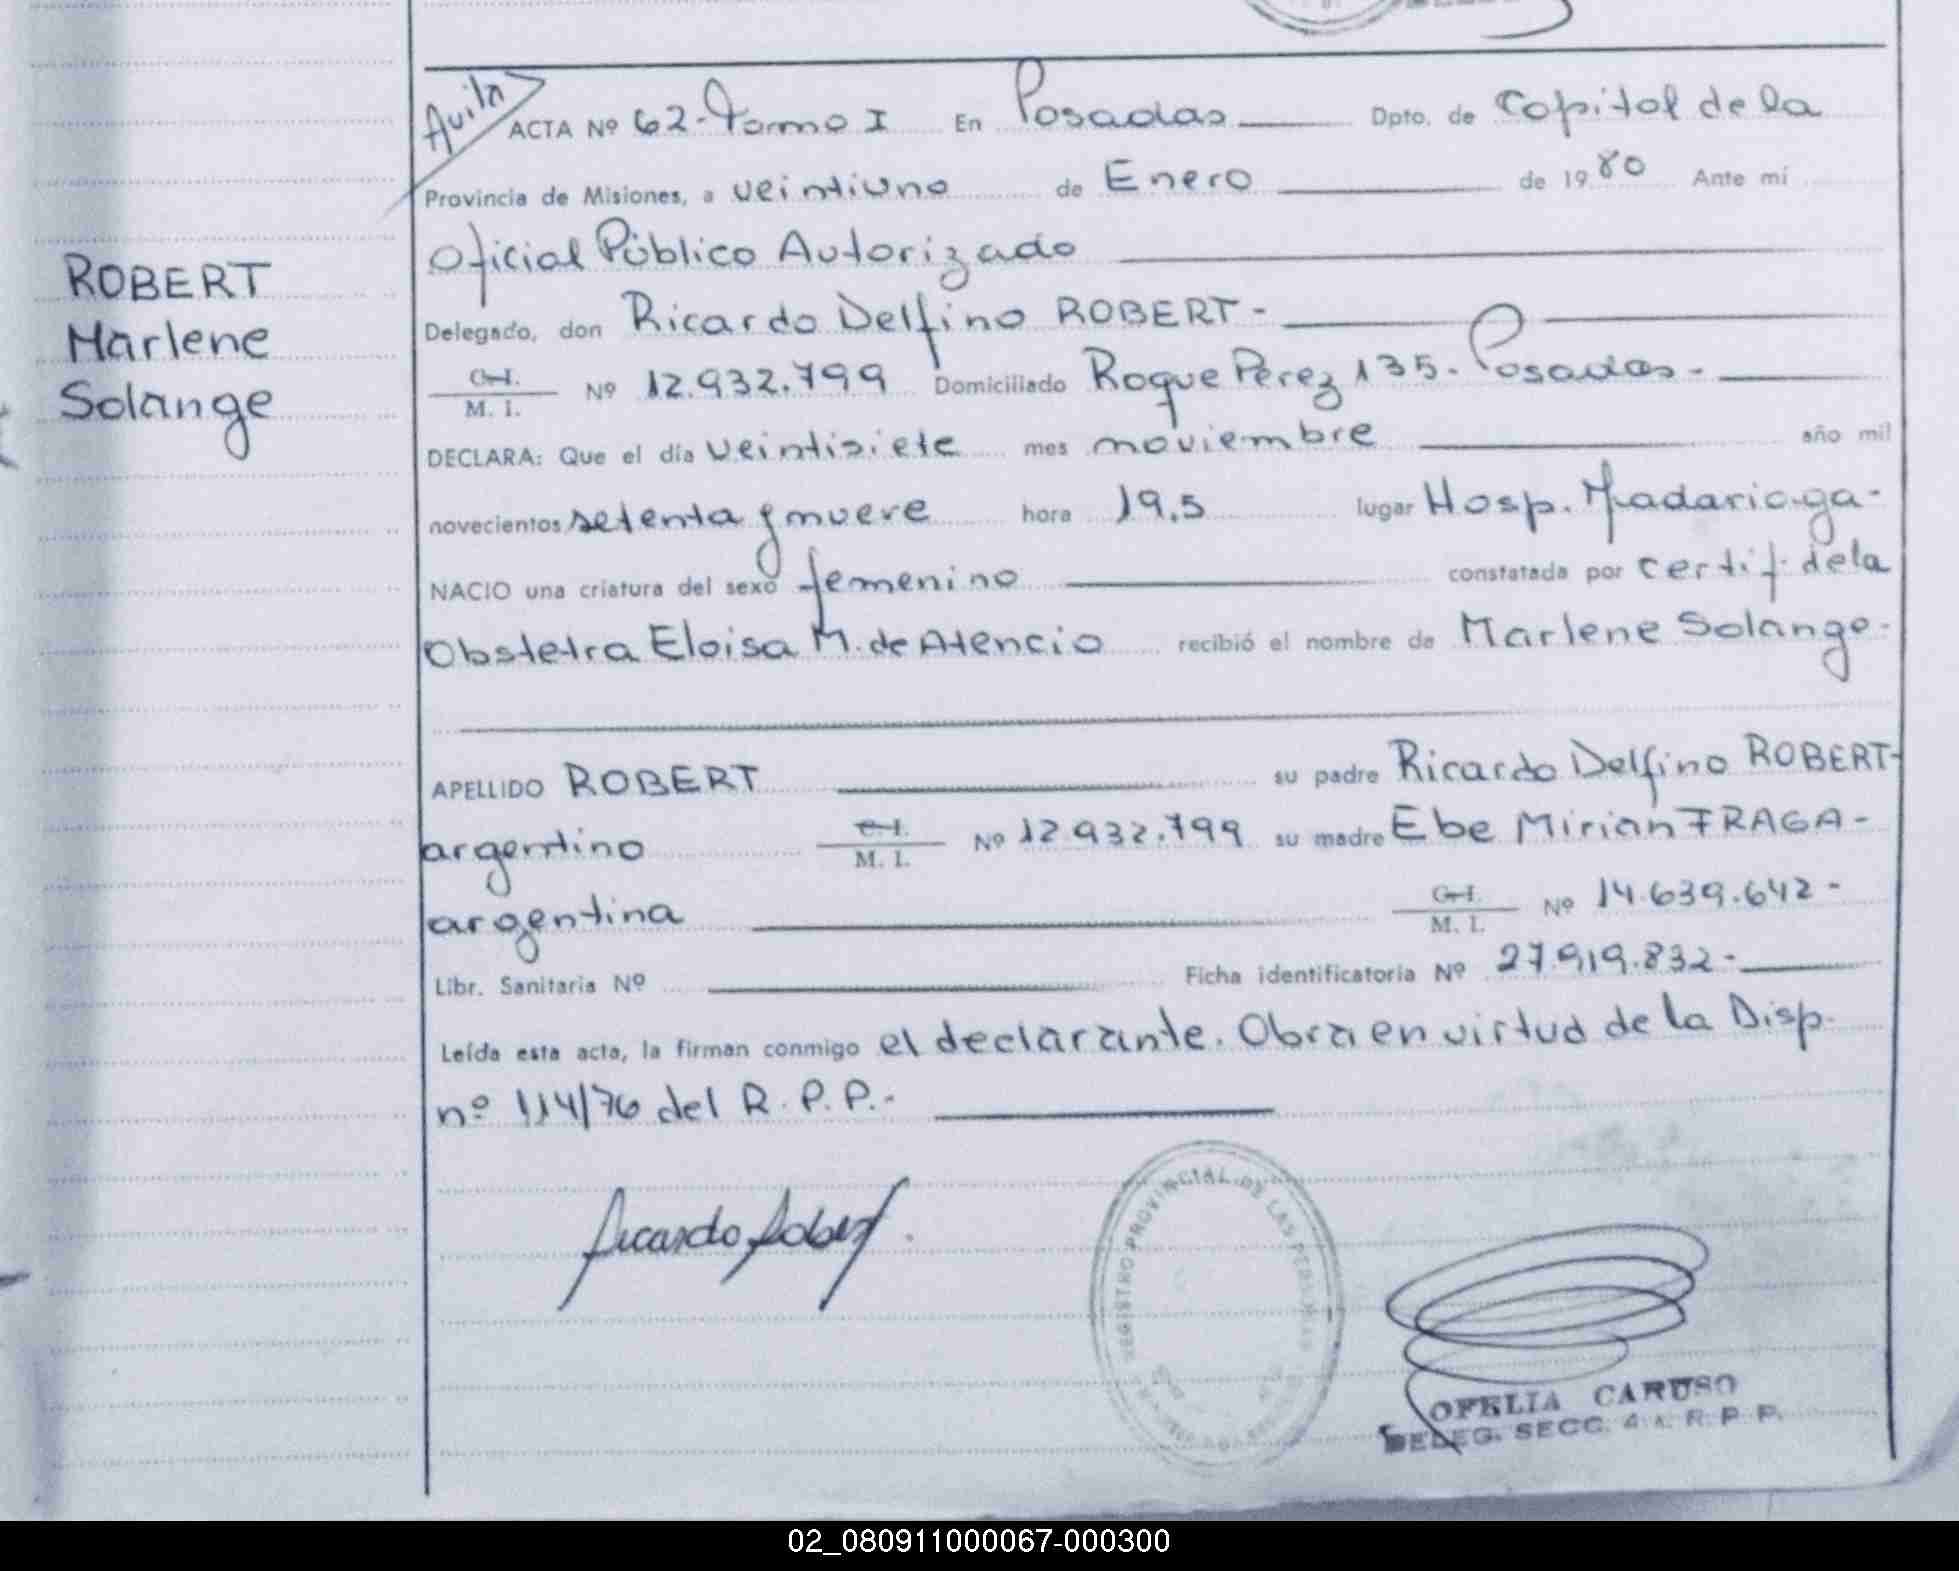 Avila
ACTA Nº 62-Tomo I En Posadas Dpto. de Capital de la
Provincia de Misiones, a veintiuno de Enero de 1980 Ante mí
Oficial Público Autorizado
ROBERT
Marlene
Solange
Delegado, don Ricardo Delfino ROBERT-
C.I.
M. I. Nº 12.932.799 Domiciliado Roque Perez 135. Posadas-
DECLARA: Que el día veintisiete mes noviembre año mil
novecientos setenta y nueve hora 19.5 lugar Hosp. Madariaga-
NACIO una criatura del sexo femenino constatada por certif. de la
Obstetra Eloisa M. de Atencio recibió el nombre de Marlene Solange-
APELLIDO ROBERT su padre Ricardo Delfino ROBERT-
argentino C.I.
M. I. Nº 12.932.799 su madre Ebe Mirian FRAGA-
argentina C.I.
M. I. Nº 14.639.642-
Libr. Sanitaria Nº Ficha identificatoria Nº 27.919.832-
Leída esta acta, la firman conmigo el declarante. Obra en virtud de la Disp.
nº 114/76 del R. P. P.-
Ricardo Robert
REGISTRO PROVINCIAL DE LAS PERSONAS
OFELIA CARUSO
DELEG. SECC. 4 A. R. P. P.
02_080911000067-000300